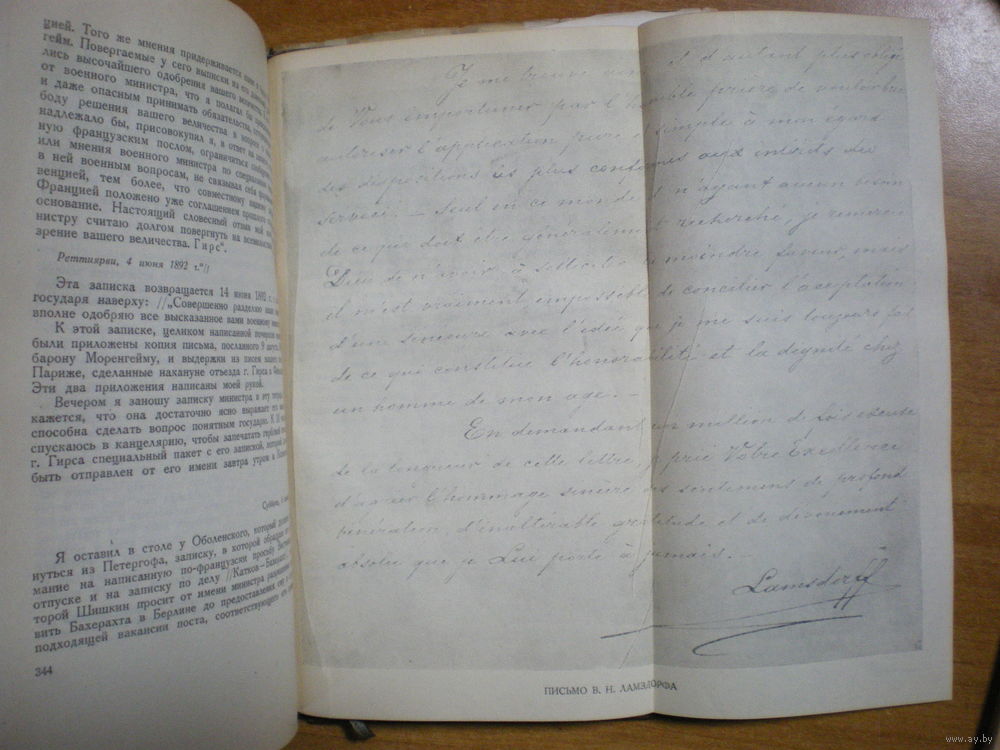 цией. Того же мнения придерживается
гейм. Повергаемые у сего выписки из его
лись высочайшего одобрения вашего
от военного министра, что я полагал бы
и даже опасным принимать обязательства,
боду решения вашего величества в вопросе
надлежало бы, присовокупил я, в ответ на
ную французским послом, ограничиться
или мнения военного министра по специальным
в ней военным вопросам, не связывая себя
венцией, тем более, что совместному
Францией положено уже соглашением прошлого
основание. Настоящий словесный отзыв мой
нистру считаю долгом повергнуть на
зрение вашего величества. Гирс".
Реттиярви, 4 июня 1892 г."//
Эта записка возвращается 14 июня 1892 г.
государя наверху: //„Совершенно разделяю ваше
вполне одобряю все высказанное вами военному
К этой записке, целиком написанной
были приложены копия письма, посланного 9 августа
барону Моренгейму, и выдержки из писем
Париже, сделанные накануне отъезда г. Гирса в
Эти два приложения написаны моей рукой.
Вечером я заношу записку министра в эту
кажется, что она достаточно ясно выражает
способна сделать вопрос понятным государю. К
спускаюсь в канцелярию, чтобы запечатать
г. Гирса специальный пакет с его запиской, который
быть отправлен от его имени завтра утром в
Суббота, 6
Я оставил в столе у Оболенского, который
нуться из Петергофа, записку, в которой обращаю
мание на написанную по-французски просьбу
отпуске и на записку по делу //Катков—
торой Шишкин просит от имени министра
вить Бахерахта в Берлине до предоставления ему
подходящей вакансии поста, соответствующего его
344
Je me trouve d'autant plus obligé
de Vous importuner par l'humble prière de vouloir bien
autoriser l'application pure et simple à mon égard
des dispositions les plus conformes aux intérêts du
service. — Seul en ce monde et n'ayant aucun besoin
de ce qui doit être généralement recherché, je remercie
Dieu de n'avoir à solliciter la moindre faveur mais
il m'est vraiment impossible de concilier l'acceptation
d'une sinécure avec l'idée que je me suis toujours fait
de ce qui constitue l'honorabilité et la dignité chez
un homme de mon age. —
En demandant un million de fois excuse
de la longueur de cette lettre, je prie Votre Excellence
d'agréer l'hommage sincère des sentimens de profonde
vénération, d'inaltérable gratitude et de dévouement
absolu que je Lui porte à jamais. —
Lamsdorff
ПИСЬМО В. Н. ЛАМЗДОРФА
www.ay.by